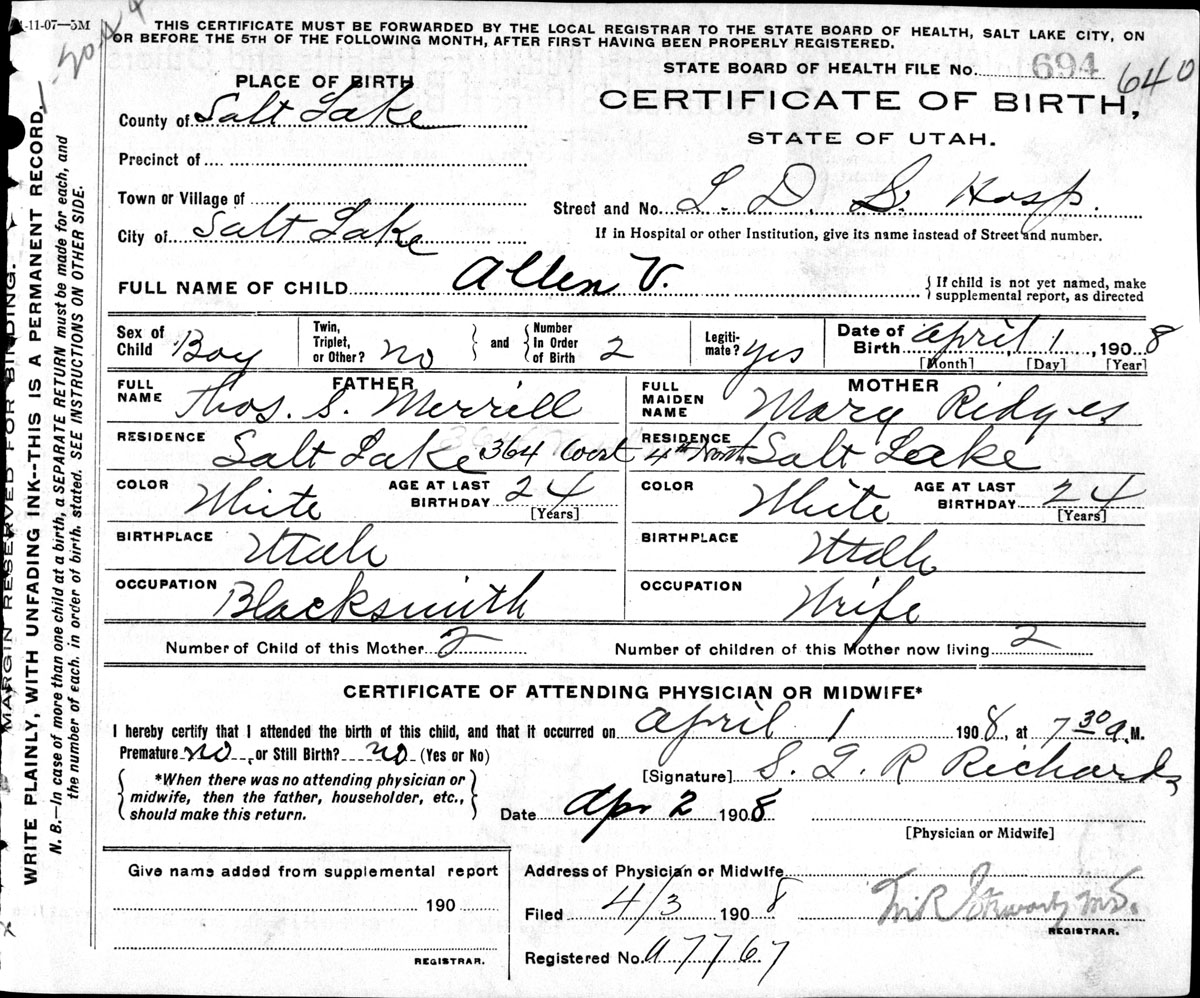 1-11-07—5M
THIS CERTIFICATE MUST BE FORWARDED BY THE LOCAL REGISTRAR TO THE STATE BOARD OF HEALTH, SALT LAKE CITY, ON
OR BEFORE THE 5TH OF THE FOLLOWING MONTH, AFTER FIRST HAVING BEEN PROPERLY REGISTERED.
STATE BOARD OF HEALTH FILE No. 694 640
PLACE OF BIRTH
CERTIFICATE OF BIRTH,
STATE OF UTAH.
County of Salt Lake
Precinct of
Town or Village of
Street and No. L. D. S. Hosp.
City of Salt Lake
If in Hospital or other Institution, give its name instead of Street and number.
FULL NAME OF CHILD Allen V.
{ If child is not yet named, make
supplemental report, as directed
Sex of Child Boy
Twin, Triplet, or Other? No } and { Number In Order of Birth 2
Legitimate? Yes
Date of Birth April 1, 1908
[Month] [Day] [Year]
FATHER
FULL NAME Thos. S. Merrill
RESIDENCE Salt Lake 364 West 4th North
COLOR White AGE AT LAST BIRTHDAY 24
[Years]
BIRTHPLACE Utah
OCCUPATION Blacksmith
MOTHER
FULL MAIDEN NAME Mary Ridges
RESIDENCE Salt Lake
COLOR White AGE AT LAST BIRTHDAY 24
[Years]
BIRTHPLACE Utah
OCCUPATION Wife
Number of Child of this Mother 2 Number of children of this Mother now living 2
CERTIFICATE OF ATTENDING PHYSICIAN OR MIDWIFE*
I hereby certify that I attended the birth of this child, and that it occurred on April 1 1908, at 7 30 a. M.
Premature no, or Still Birth? no (Yes or No)
{ *When there was no attending physician or
midwife, then the father, householder, etc.,
should make this return. }
[Signature] S. L. R Richards
Date Apr 2 1908
[Physician or Midwife]
Give name added from supplemental report
190
REGISTRAR.
Address of Physician or Midwife
Filed 4/3 1908
REGISTRAR.
Registered No. a7767
MARGIN RESERVED FOR BINDING.
WRITE PLAINLY, WITH UNFADING INK--THIS IS A PERMANENT RECORD.
N. B.—In case of more than one child at a birth, a SEPARATE RETURN must be made for each, and
the number of each, in order of birth, stated. SEE INSTRUCTIONS ON OTHER SIDE.